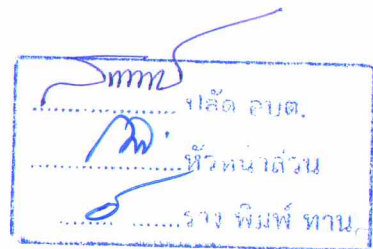 ปลัด อบต.
หัวหน้าส่วน
ร่าง พิมพ์ ทาน